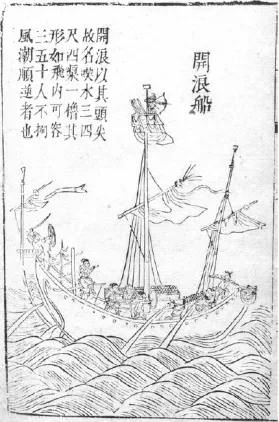 開浪船
開浪以其頭尖
故名喫水三四
尺四槳一櫓其
形如飛內可容
三五十人不拘
風潮順逆者也